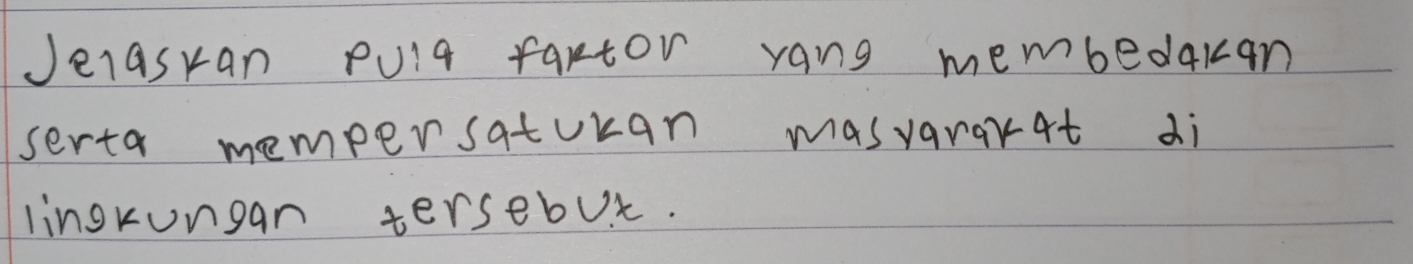 Jelaskan pula faktor yang membedakan
serta mempersatukan masyarakat di
lingkungan tersebut.